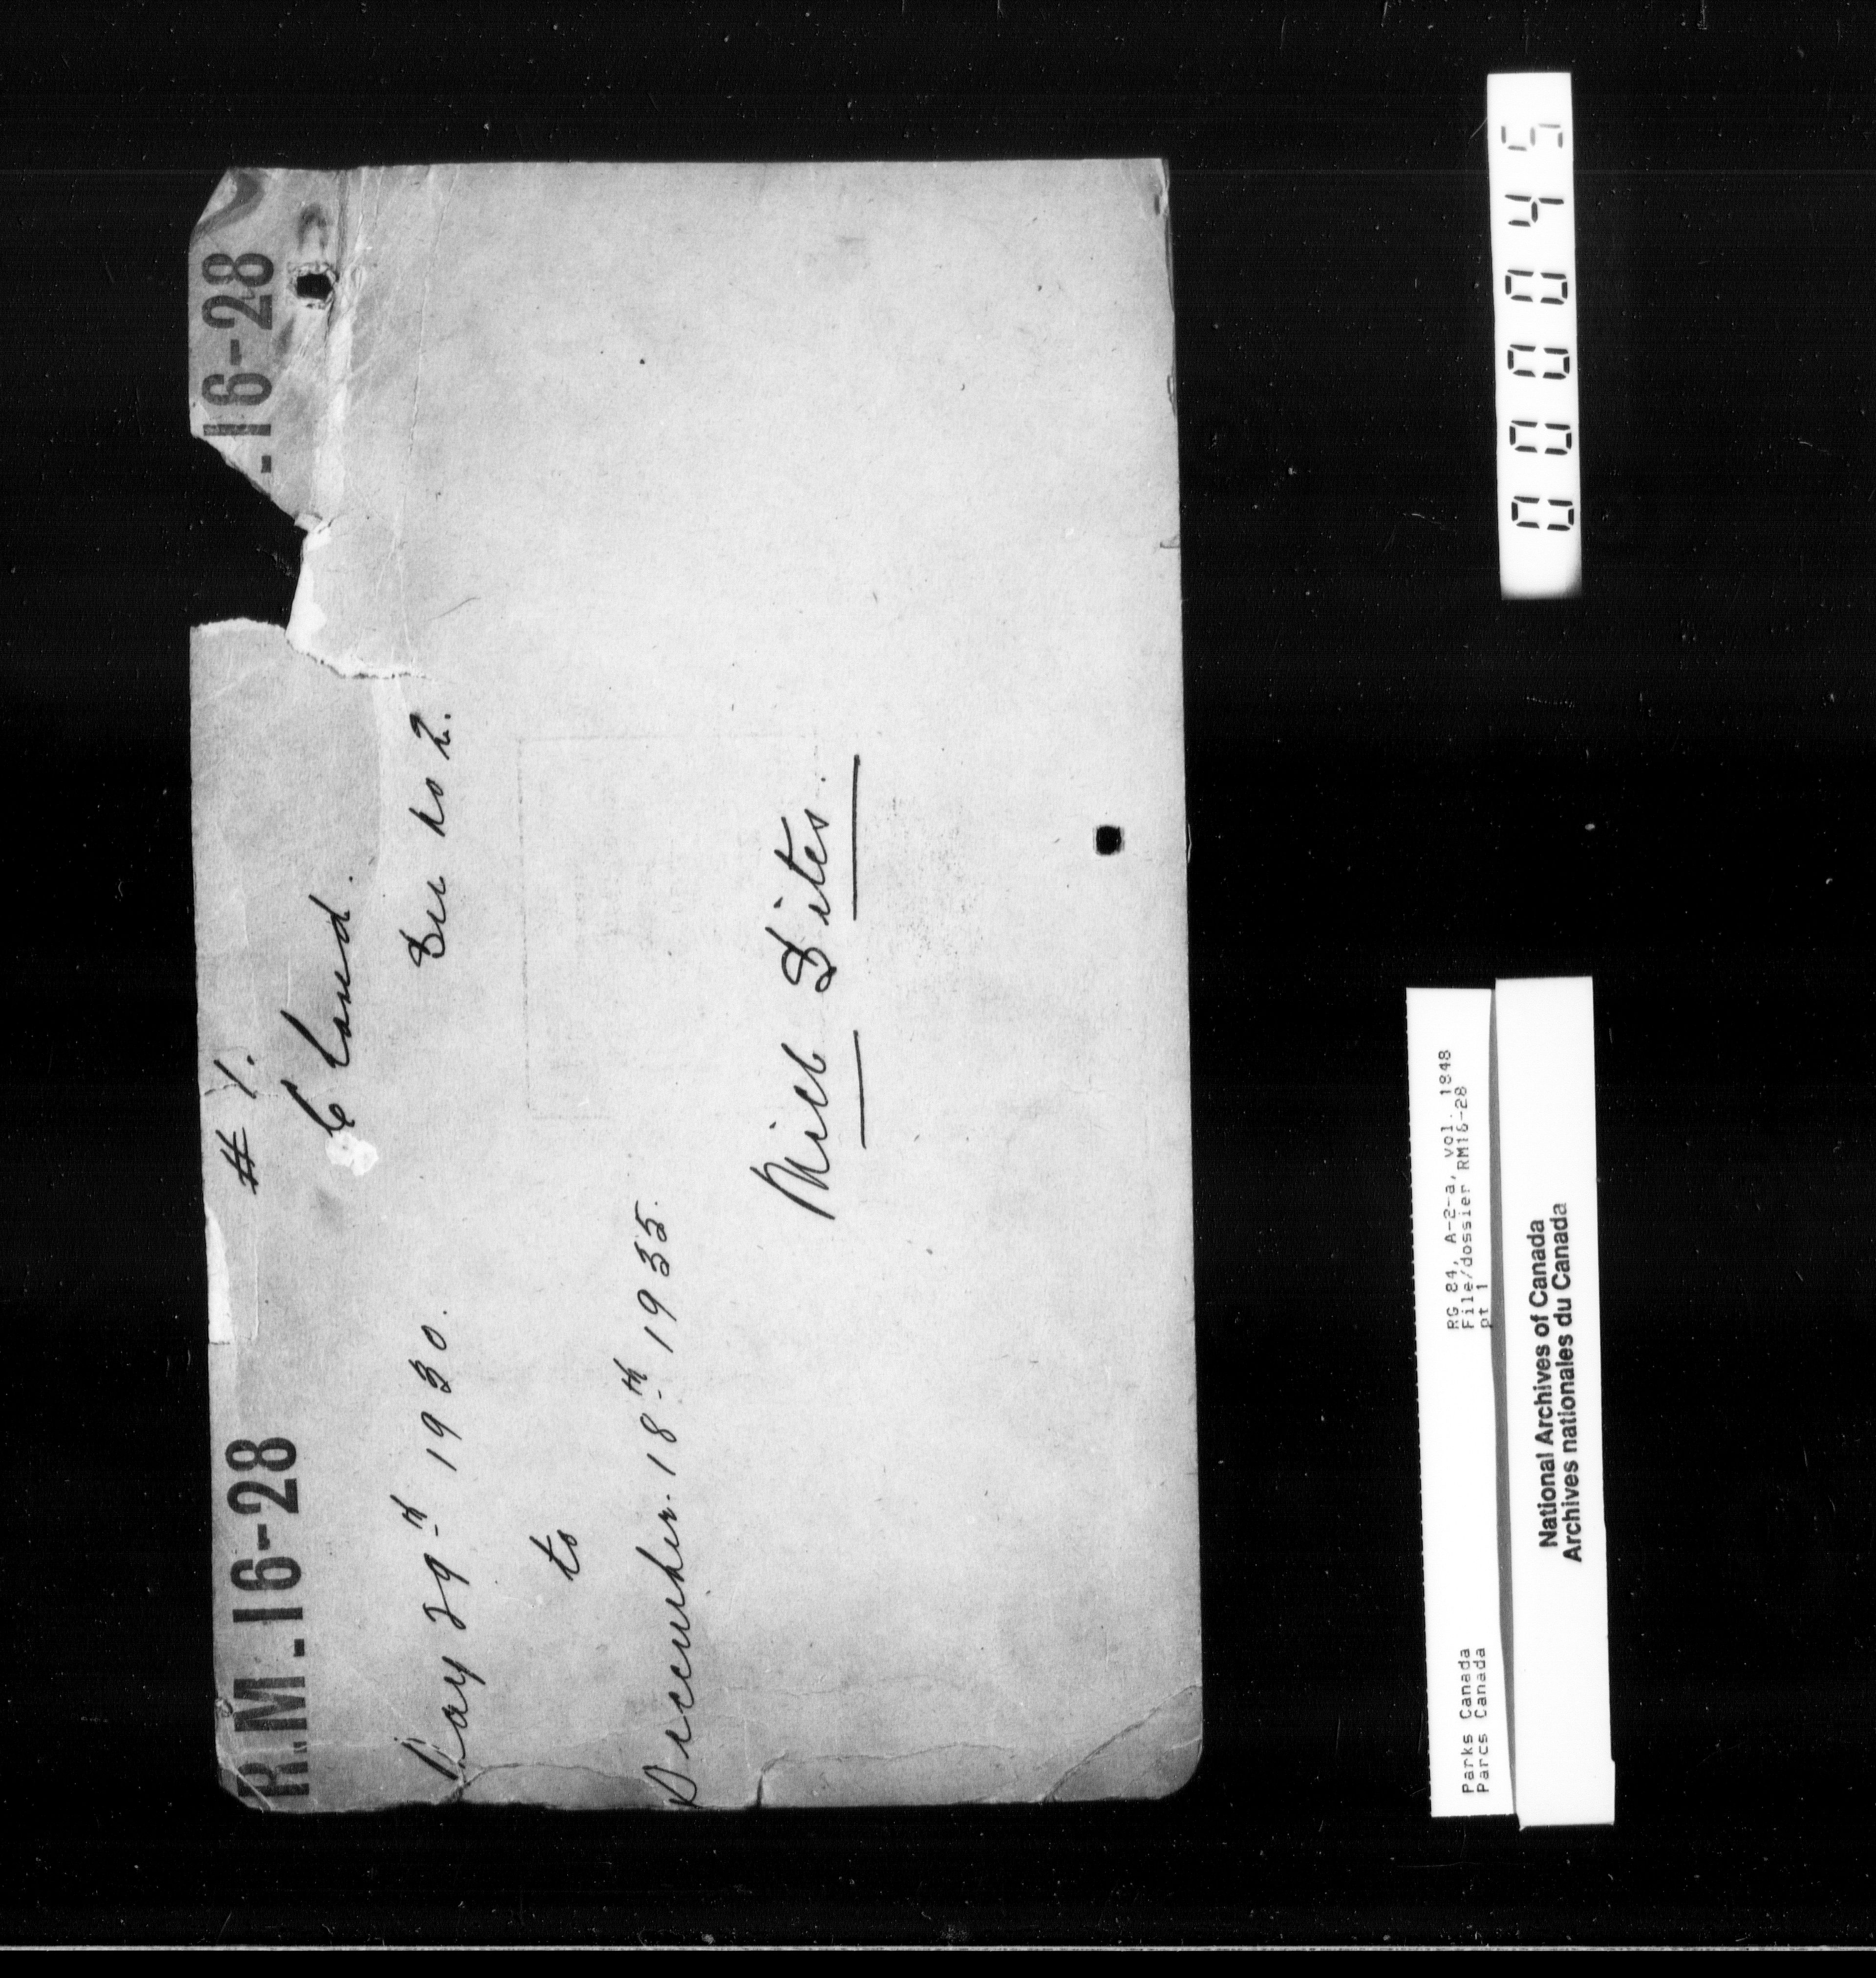 R.M. 16-28
# 1.
-16-28
Closed.
May 29th 1930.
See No 2.
to
December. 18th 1935.
Mill Sites.
000045
Parks Canada
Parcs Canada
RG 84, A-2-a, vol. 1848
File/dossier RM16-28
pt 1
National Archives of Canada
Archives nationales du Canada